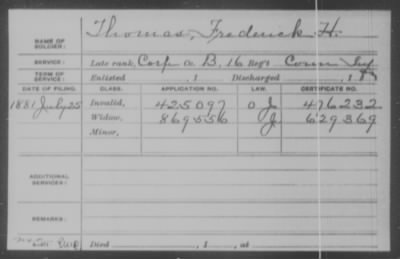 NAME OF SOLDIER: Thomas, Frederick H.
SERVICE: Late rank, Corp Co. B, 16 Reg't Conn Inf
TERM OF SERVICE: Enlisted , 1 Discharged , 1
DATE OF FILING. CLASS. APPLICATION NO. LAW. CERTIFICATE NO.
1881 July 25 Invalid, 425097 O J 476232
Widow, 869556 J 629369
Minor,
ADDITIONAL SERVICES:
REMARKS:
Died , 1 , at